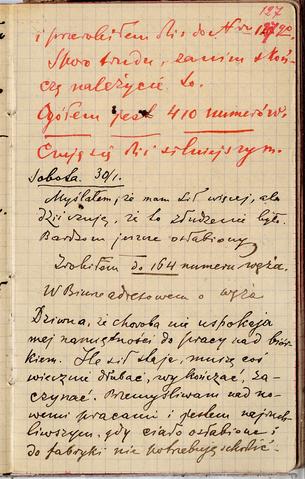 127
i przerobiłem dziś do Nru 127
Sporo trudu, zanim skoń-
czę należycie to.
Ogółem jest 410 numerów.
Czuję się dziś silniejszym.
Sobota. 30/1.
Myślałem, że mam sił więcej, ale
dziś czuję, że to złudzenie było.
Bardzom jeszcze osłabiony
Zrobiłem do 164 numeru węża.
W Biurze adresowem o węża
Dziwna, że choroba nie uspokaja
mej namiętności do pracy nad biór-
kiem. Ile sił staje, muszę coś
wiecznie dłubać, wykończać, za-
czynać. Przemyśliwam nad no-
wemi pracami i jestem najszczę-
śliwszym, gdy ciało osłabione i
do fabryki nie potrzebuję chodzić.